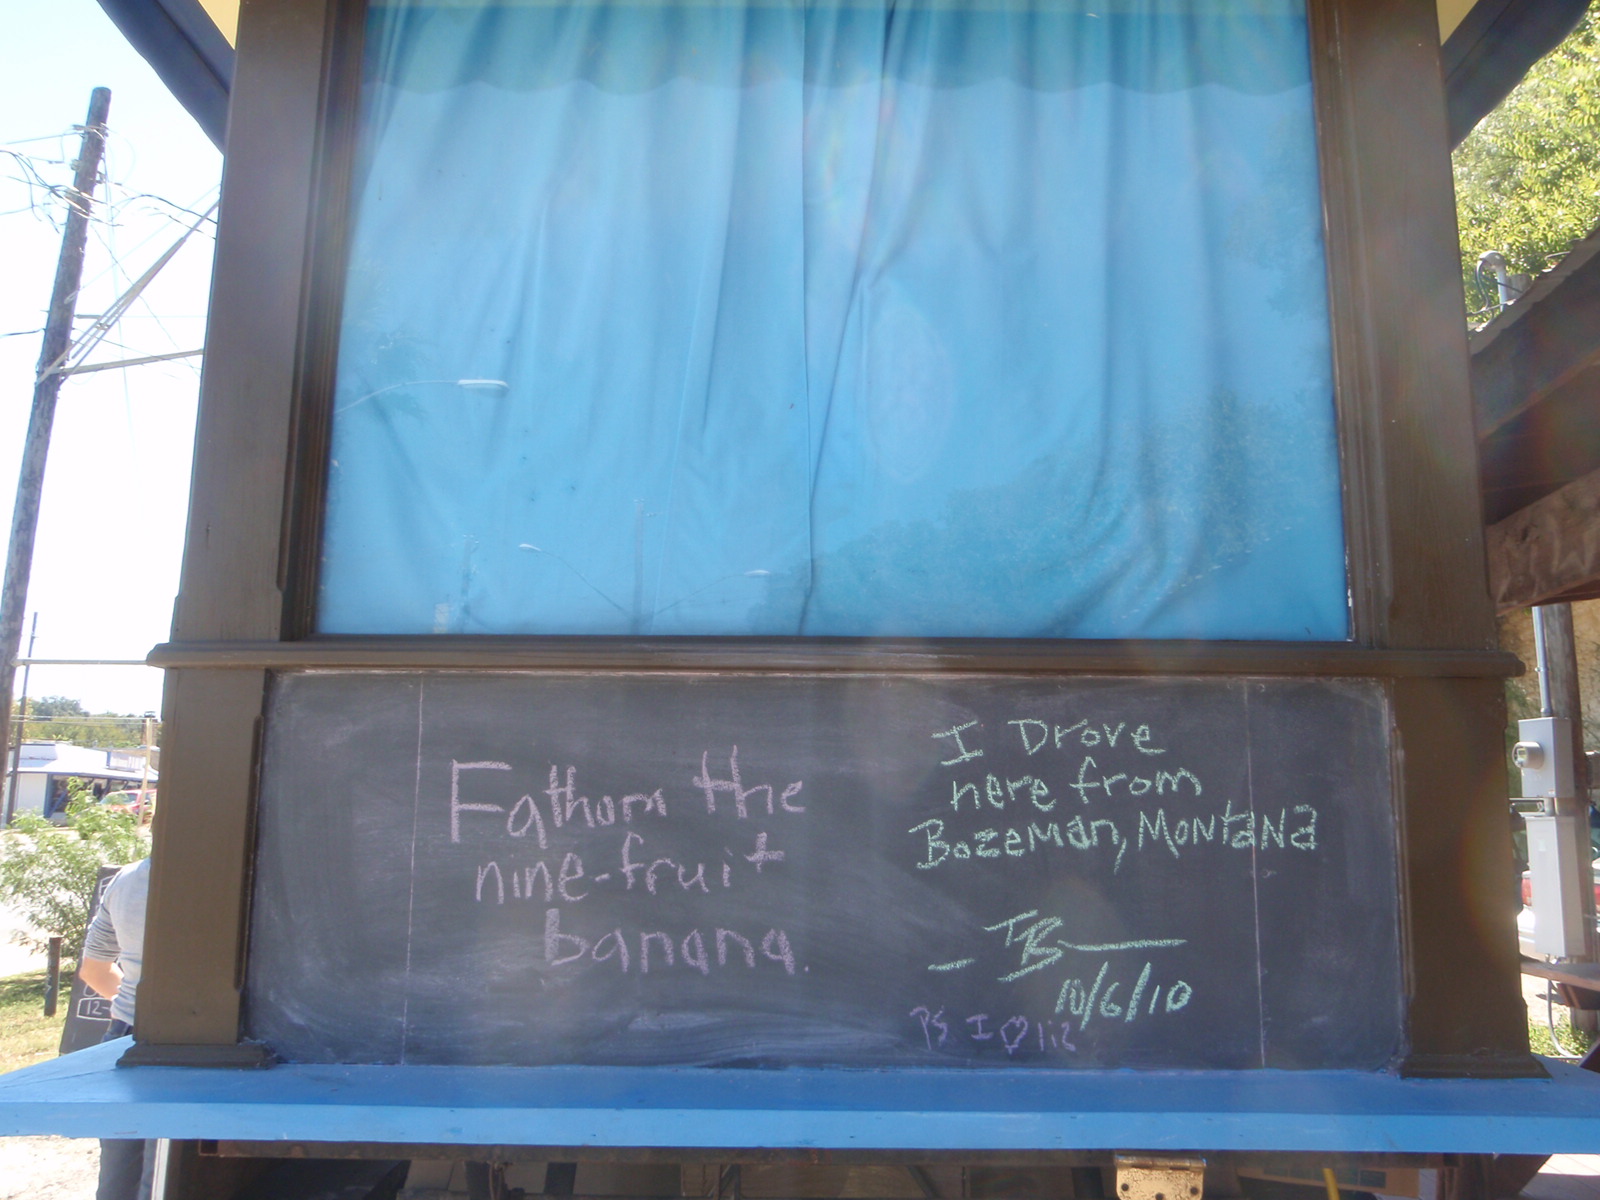 Fathom the
nine-fruit
banana.
I Drove
here from
Bozeman, Montana
- TB
10/6/10
PS I ♡ liz
12-